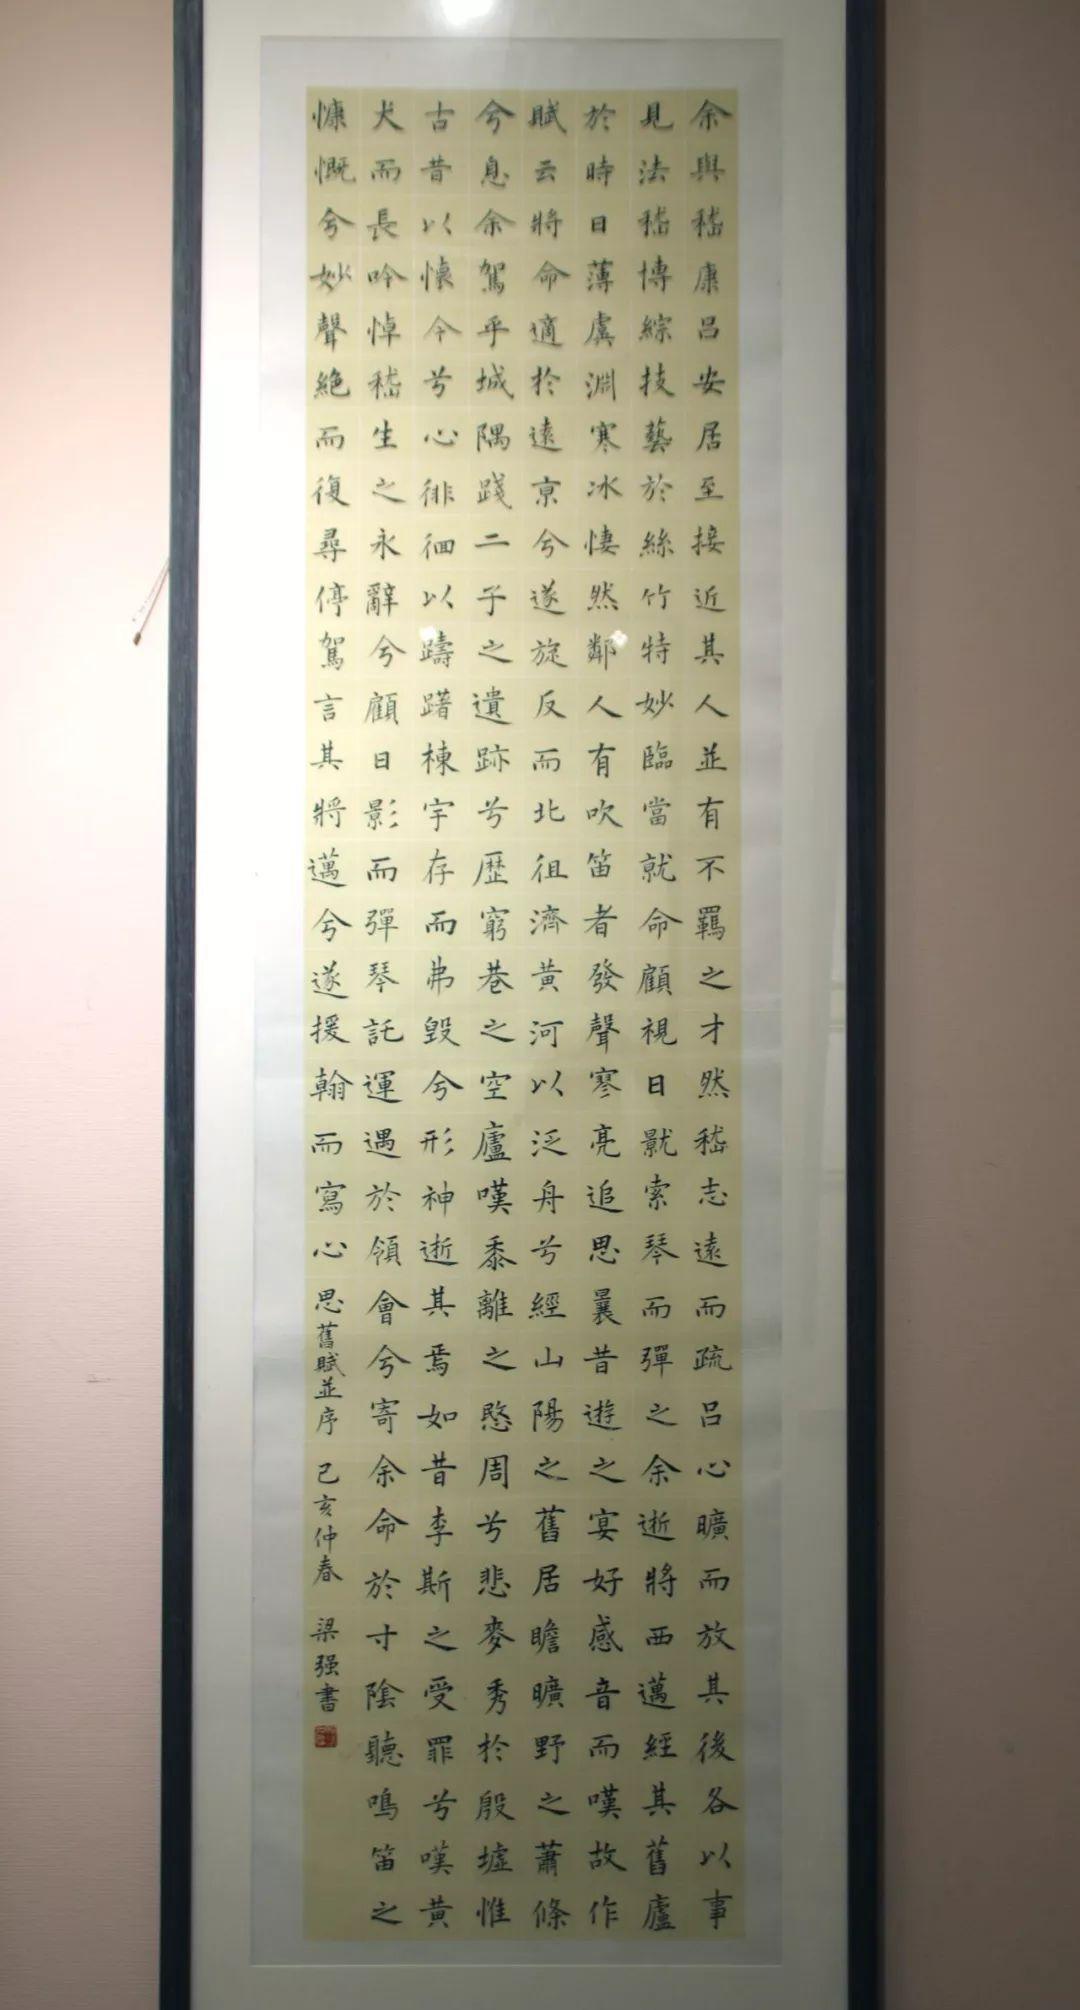 余與嵇康呂安居至接近其人並有不羈之才然嵇志遠而疏呂心曠而放其後各以事
見法嵇博綜技藝於絲竹特妙臨當就命顧視日影索琴而彈之余逝將西邁經其舊廬
於時日薄虞淵寒冰悽然鄰人有吹笛者發聲寥亮追思曩昔遊之宴好感音而嘆故作
賦云將命適於遠京兮遂旋反而北徂濟黃河以泛舟兮經山陽之舊居瞻曠野之蕭條
兮息余駕乎城隅踐二子之遺跡兮歷窮巷之空廬嘆黍離之愍周兮悲麥秀於殷墟惟
古昔以懷今兮心徘徊以躊躇棟宇存而弗毀兮形神逝其焉如昔李斯之受罪兮嘆黃
犬而長吟悼嵇生之永辭兮顧日影而彈琴託運遇於領會兮寄余命於寸陰聽鳴笛之
慷慨兮妙聲絕而復尋停駕言其將邁兮遂援翰而寫心 思舊賦並序 己亥仲春 梁强書